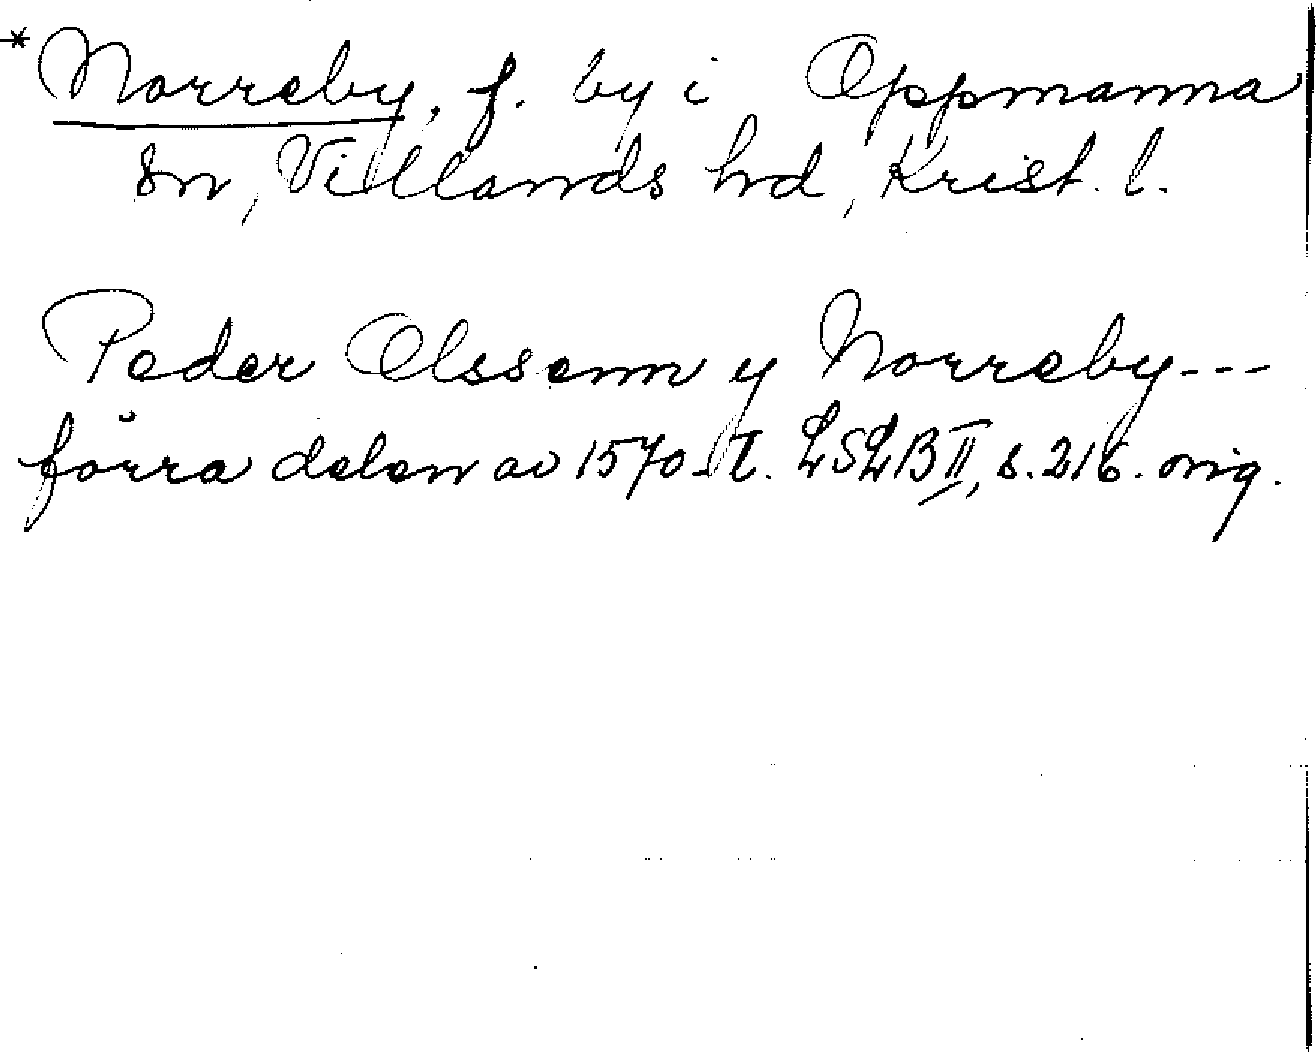 *Norreby, f. by i Oppmanna
sn, Villands hd, Krist. l.
Peder Olssenn y Norreby---
förra delen av 1570-t. LSLB II, s. 216. orig.